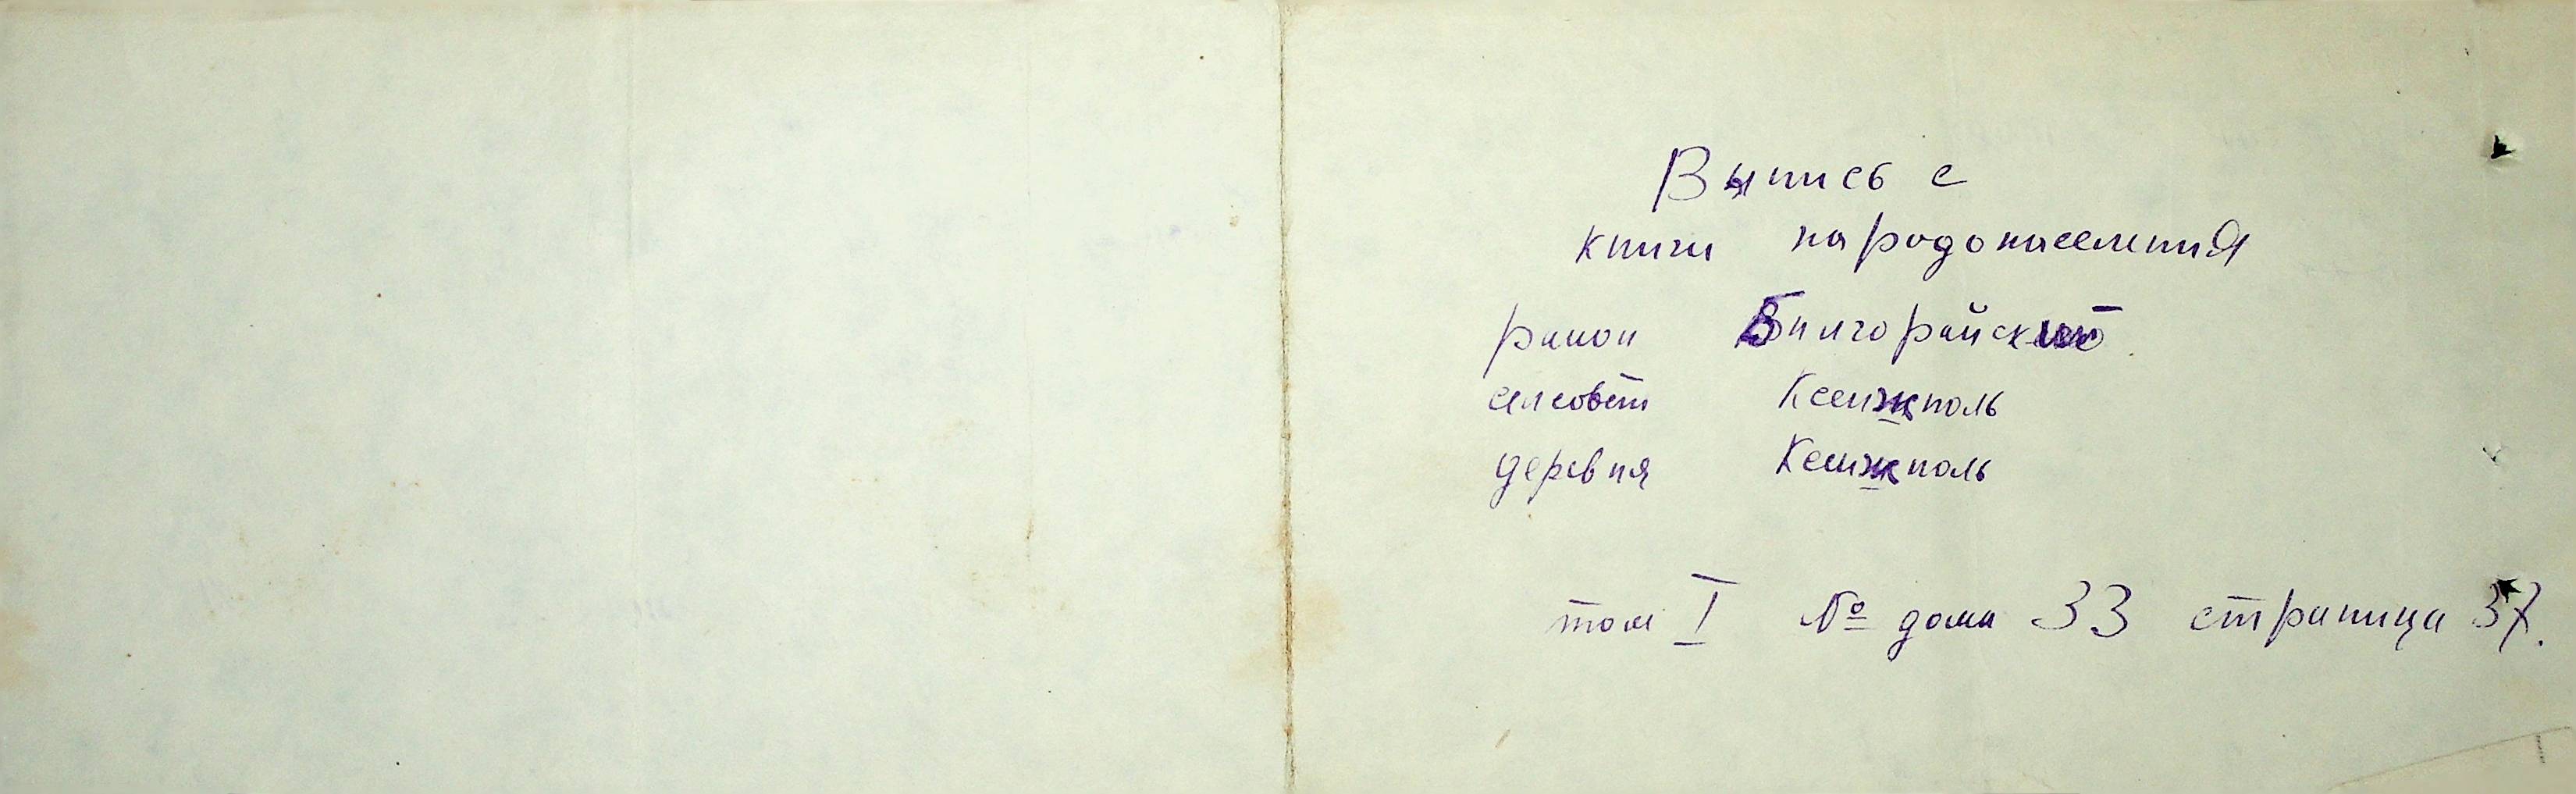 Выпись с
книги народонаселения
район Билгорайский
сельсовет Ксенжполь
деревня Ксенжполь
том I № дома 33 страница 37.